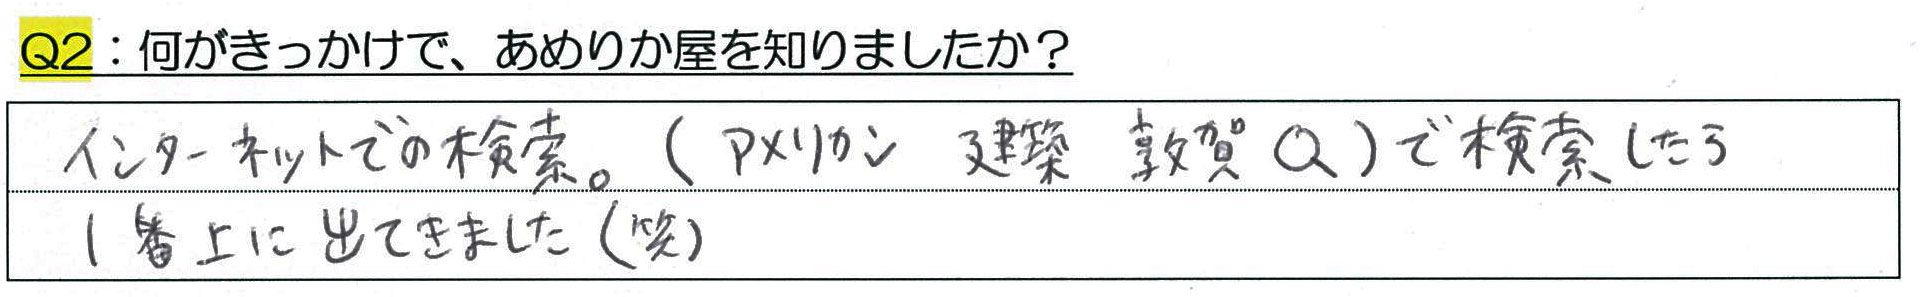 Q2：何がきっかけで、あめりか屋を知りましたか？
インターネットでの検索。(アメリカン 建築 敦賀 Q)で検索したら
1番上に出てきました(笑)